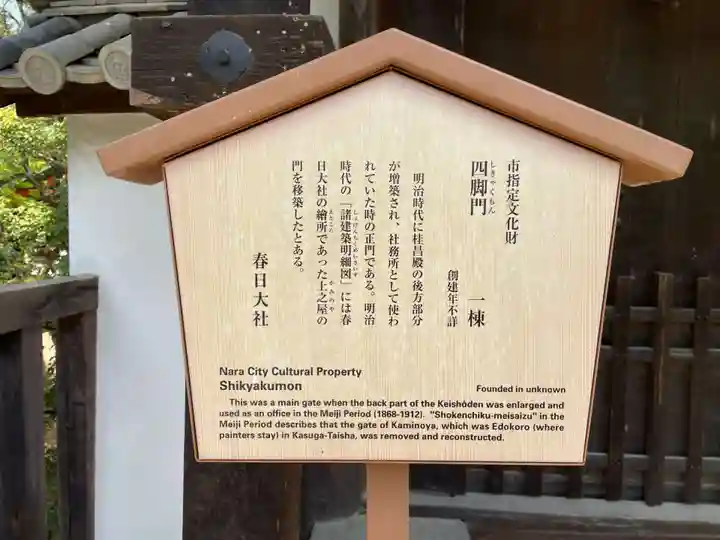 市指定文化財
四脚門 一棟
しきゃくもん
創建年不詳
明治時代に桂昌殿の後方部分
が増築され、社務所として使わ
れていた時の正門である。明治
時代の「諸建築明細図」には春
しょけんちくめいさいず
日大社の繪所であった上之屋の
えどころ かみのや
門を移築したとある。
春日大社
Nara City Cultural Property
Shikyakumon
Founded in unknown
This was a main gate when the back part of the Keishōden was enlarged and
used as an office in the Meiji Period (1868-1912). "Shokenchiku-meisaizu" in the
Meiji Period describes that the gate of Kaminoya, which was Edokoro (where
painters stay) in Kasuga-Taisha, was removed and reconstructed.